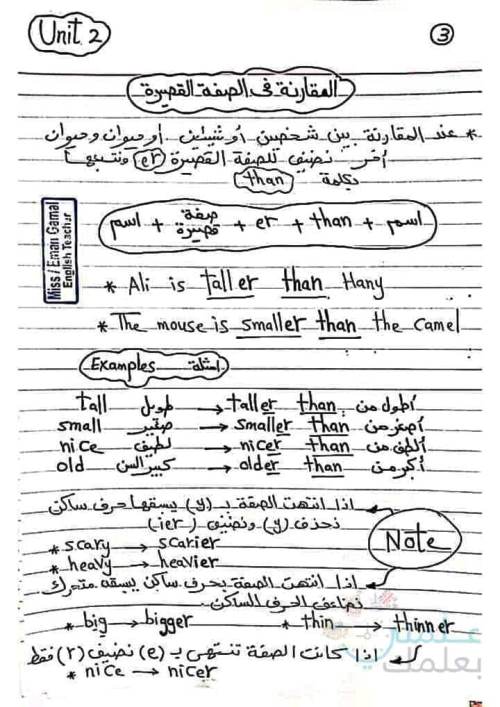 Unit 2
3
المقارنة فى الصفة القصيرة
* عند المقارنة بين شخصين أو شيئين أو حيوان وحيوان
أخر نضيف للصفة القصيرة er ونتبعها
بكلمة than
اسم + صفة قصيرة + er + than + اسم
Miss / Eman Gamal
English Teacher
* Ali is taller than Hany
* The mouse is smaller than the camel
Examples امثلة
tall طويل → taller than أطول من
small صغير → smaller than أصغر من
nice لطيف → nicer than ألطف من
old كبير السن → older than أكبر من
اذا انتهت الصفة بـ (y) يسبقها حرف ساكن
نحذف (y) ونضيف (ier)
Note
* scary → scarier
* heavy → heavier
اذا انتهت الصفة بحرف ساكن يسبقه متحرك
نضاعف الحرف الساكن.
* big → bigger * thin → thinner
اذا كانت الصفة تنتهى بـ (e) نضيف (r) فقط
* nice → nicer
علمني
بعلمك